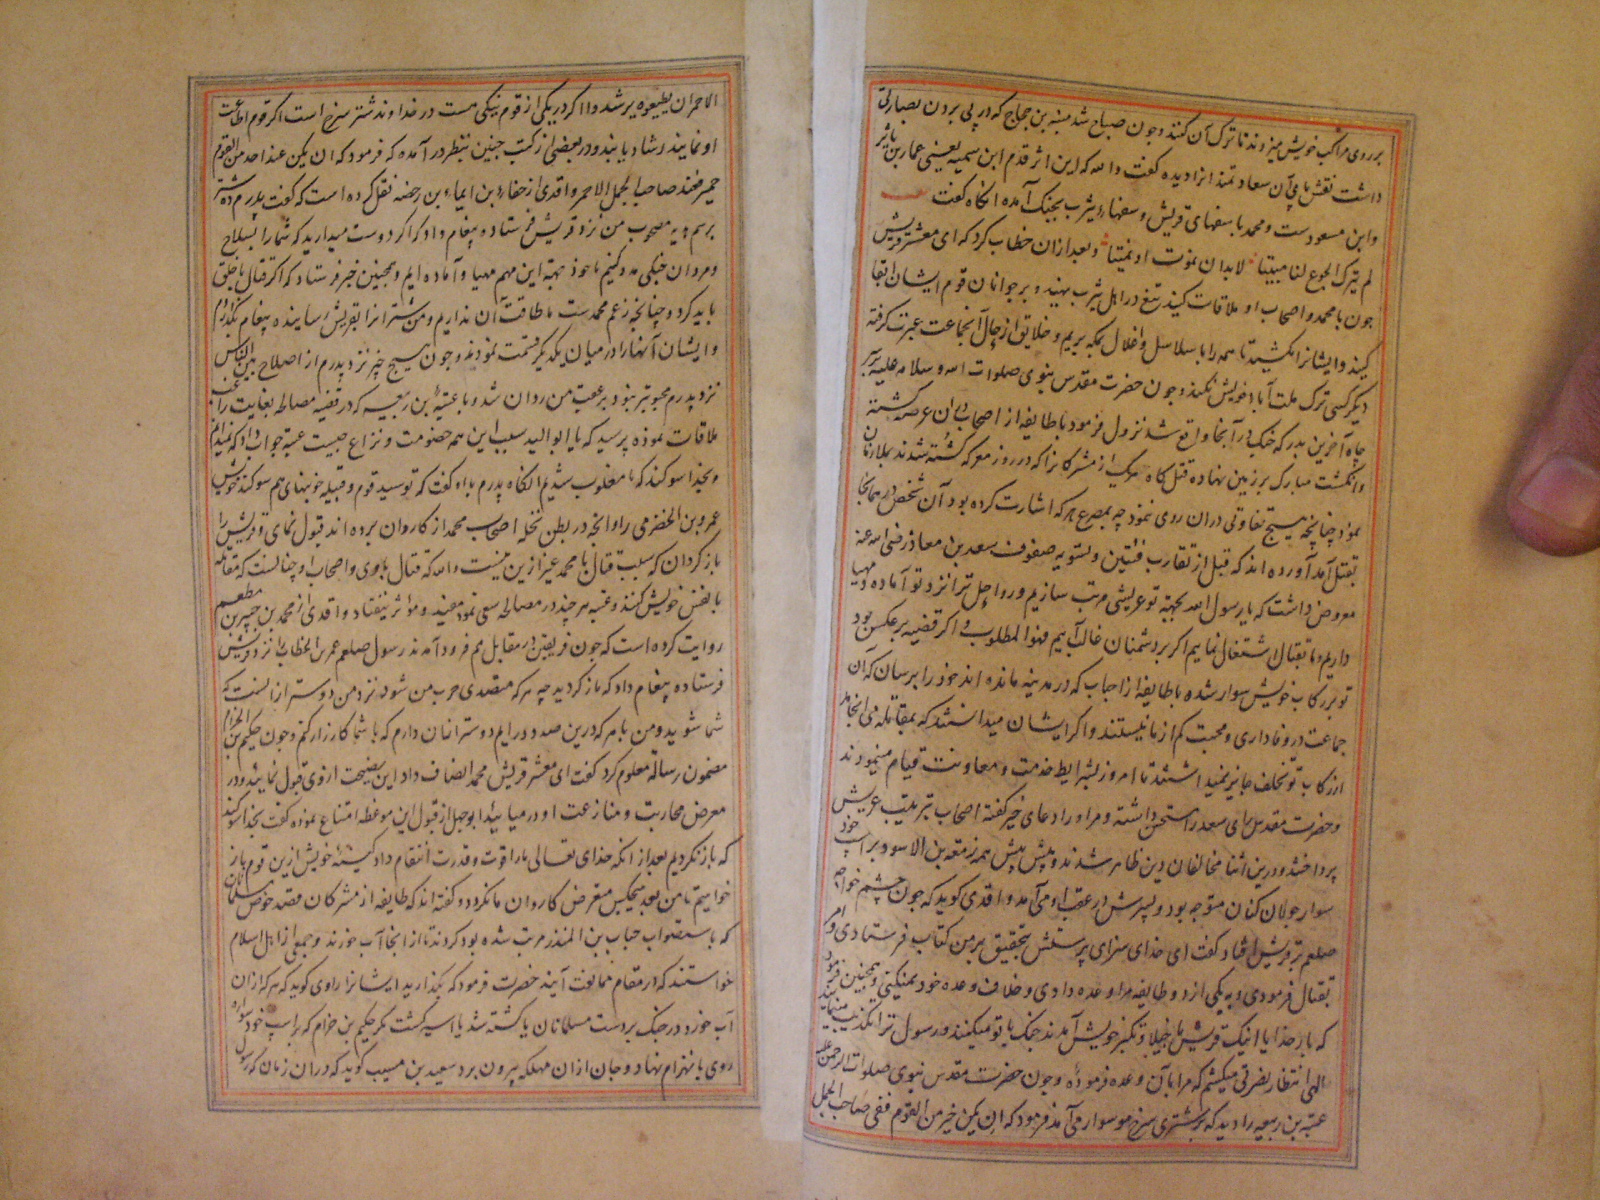 بر روی مراکب خویش میزدند تا ترک آن کنند و چون صباح شد منبه بن حجاج که در پی بردن بصارتی
داشت نقش پای آن سعادتمندانرا دیده گفت والله که این اثر قدم ابن سمیه یعنی عمار بن یاسر
وابن مسعودست و محمد با سفهای قریش و سفهاء یثرب بجنک آمده انکاه گفت
لم یترک الجوع لنا مبیتا لابد ان نموت او نمیتا و بعد ازان خطاب کرد که ای معشر قریش
چون با محمد و اصحاب او ملاقات کنید تیغ در اهل یثرب نهید و بر جوانان قوم ایشان ابقا
کنید و ایشانرا مکشید تا همه را با سلاسل و اغلال بمکه بریم و خلایق از حال آنجماعت عبرت کرفته
دیکر کسی ترک ملت آباء خویش نکند و چون حضرت مقدس نبوی صلوات الله و سلامه علیه بر سر
چاه آخرین بدر که جنک در آنجا واقع شد نزول فرمود با طایفه از اصحاب دران عرصه کشته
وانکشت مبارک بر زمین نهاده قتل کاه هریک از مشرکانرا که در روز معرکه کشته شدند بملازمان
نمود چنانچه هیچ تفاوتی دران روی ننمود چه بمصرع هر که اشارت کرده بود آن شخص در همانجا
بقتل آمد آورده اند که قبل از تقارب فئتین و تسویه صفوف سعد بن معاذ رضی الله عنه
معروض داشت که یا رسول الله بجهته تو عریشی مرتب سازیم و رواحل ترا نزد تو آماده و مهیا
داریم و ما بقتال اشتغال نماییم اکر بر دشمنان غالب آییم فهوالمطلوب و اکر قضیه بر عکس بود
تو بر رکاب خویش سوار شده با طایفه از احباب که در مدینه مانده اند خود را برسان که آن
جماعت در وفاداری و محبت کم از ما نیستند و اکر ایشان میدانستند که بمقابله می انجامد
از رکاب تو تخلف جایز نمیداشتند تا امروز بشرایط خدمت و معاونت قیام مینمودند
و حضرت مقدس رای سعد را مستحسن داشته و مر او را دعای خیر گفته اصحاب بترتیب عریش
پرداختند و درین اثنا مخالفان دین ظاهر شدند و پیش پیش همه زمعه بن الاسود بر اسپ خود
سوار جولان کنان متوجه بود و پسرش از عقب او می آمد واقدی کوید که چون چشم خواجه
صلعم بر قریش افتاد گفت ای خدای سزای پرستش بتحقیق بر من کتاب فرستادی و امر
بقتال فرمودی و به یکی از دو طایفه مرا وعده دادی و خلاف وعده خود نمیکنی و همچنین فرمود
که بار خدایا اینک قریش با خیلا و تکبر خویش آمدند جنک با تو میکنند و رسول ترا تکذیب مینمایند
الهی انتظار نصرتی میکشم که مرا بآن وعده فرموده و چون حضرت مقدس نبوی صلوات الرحمن علیه
عتبه بن ربیعه را دید که بر شتری سرخ مو سوار می آمد فرمود که ان یکن خیر من القوم ففی صاحب الجمل
الاحمر ان یطیعوه یرشدوا اکر در یکی از قوم نیکی هست در خداوند شتر سرخ است اکر قوم اطاعت
او نمایند رشاد یابند و در بعضی از کتب چنین بنظر در آمده که فرمود که ان یکن عند احد من القوم
خیر فعند صاحب الجمل الاحمر واقدی از خفاء بن ایماء بن رحضه نقل کرده است که گفت پدرم ده شتر
برسم هدیه مصحوب من نزد قریش فرستاده پیغام داد که اکر دوست میدارید که شما را بسلاح
و مردان جنکی مدد کنیم ما خود جهته این مهم مهیا و آماده ایم و همچنین خبر فرستاد که اکر قتال با خلق
باید کرد و چنانچه زعم محمدست ما طاقت آن نداریم و من شترانرا بقریش رسانیده پیغام بکذاردم
و ایشان آنها را در میان یکدیکر قسمت نمودند و چون هیچ چیز نزد پدرم از اصلاح بین الناس
نزد پدرم محبوبتر نبود بر عقب من روان شد و با عتبه بن ربیعه که در قضیه مصالحه بغایت راغب
ملاقات نموده پرسید که یا ابوالولید سبب این همه خصومت و نزاع چیست عتبه جواب داد که نمیدانم
و بخدا سوکند که ما مغلوب شدیم انکاه پدرم با او گفت که تو سید قوم و قبیله خونبهای هم سوکند خویش
عمرو بن الحضرمی را و انچه در بطن نخله اصحاب محمد از کاروان برده اند قبول نمای و قریش را
باز کردان که سبب قتال با محمد غیر ازین نیست والله که قتال با وی و اصحاب او چنانست که مقاتله
با نفس خویش کنند و عتبه هر چند در مصالحه سعی نمود مفید و مؤثر نیفتاد واقدی از محمد بن جبیر بن مطعم
روایت کرده است که چون فریقین در مقابل هم فرود آمدند رسول صلعم عمر بن الخطاب را نزد قریش
فرستاده پیغام داد که باز کردید چه هر که متصدی حرب من شود نزد من دوستر ازانست که
شما شوید و من با هر که درین صدد در ایم دوستر ازان دارم که با شما کارزار کنم و چون حکیم بن الحزام
مضمون رساله معلوم کرد گفت ای معشر قریش محمد انصاف داد این نصیحت از وی قبول نمایید و در
معرض محاربت و منازعت او در میایید ابوجهل از قبول این موعظه امتناع نموده گفت بخدا سوکند
که باز نکردیم بعد از انکه خدای تعالی ما را قوت و قدرت انتقام داد کینه خویش ازین قوم باز
خواهیم تا من بعد هیچکس متعرض کاروان ما نکردد و گفته اند که طایفه از مشرکان قصد حوض مسلمانان
که باستصواب حباب بن المنذر مرتب شده بود کردند تا از انجا آب خورند و جمعی از اهل اسلام
خواستند که در مقام ممانعت آیند حضرت فرمود که بکذارید ایشانرا راوی کوید که هر که ازان
آب خورد در جنک بر دست مسلمانان یا کشته شد یا اسیر گشت مکر حکیم بن حزام که بر اسپ خود سوار
روی بانهزام نهاد و جان ازان مهلکه بیرون برد سعید بن مسیب کوید که دران زمان که رسول